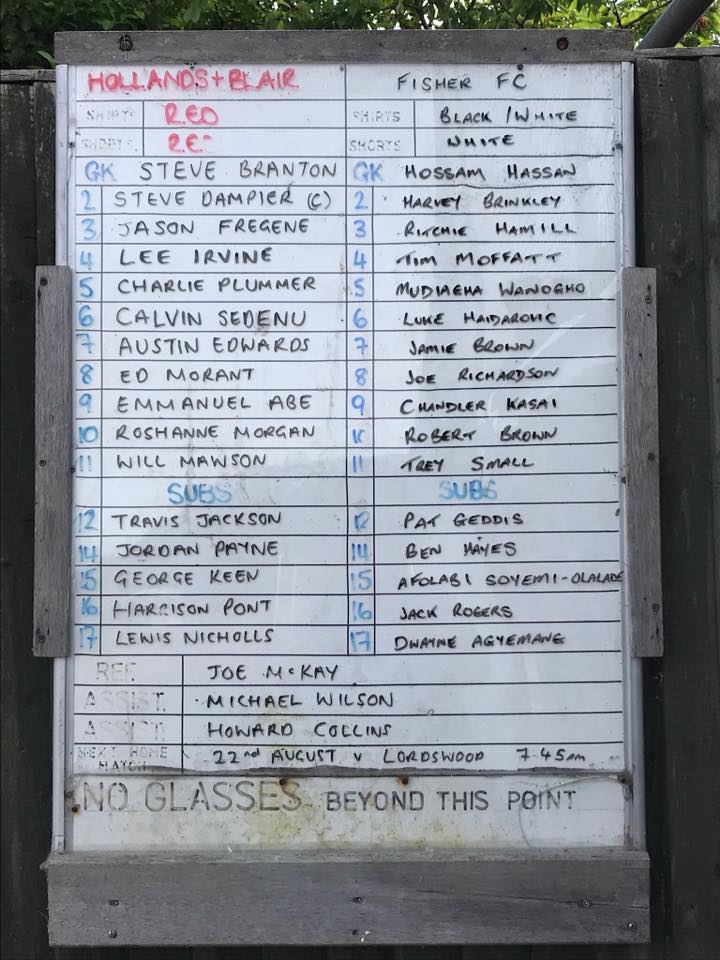 HOLLANDS+BLAIR FISHER FC
SHIRTS RED SHIRTS BLACK/WHITE
SHORTS RE SHORTS WHITE
GK STEVE BRANTON GK HOSSAM HASSAN
2 STEVE DAMPIER (C) 2 HARVEY BRINKLEY
3 JASON FREGENE 3 RITCHIE HAMILL
4 LEE IRVINE 4 TIM MOFFATT
5 CHARLIE PLUMMER 5 MUDIAGHA WANOGHO
6 CALVIN SEDENU 6 LUKE HAIDAROVIC
7 AUSTIN EDWARDS 7 JAMIE BROWN
8 ED MORANT 8 JOE RICHARDSON
9 EMMANUEL ABE 9 CHANDLER KASAI
10 ROSHANNE MORGAN 10 ROBERT BROWN
11 WILL MAWSON 11 TREY SMALL
SUBS SUBS
12 TRAVIS JACKSON 12 PAT GEDDIS
14 JORDAN PAYNE 14 BEN HAYES
15 GEORGE KEEN 15 AFOLABI SOYEMI-OLALADE
16 HARRISON PONT 16 JACK ROGERS
17 LEWIS NICHOLLS 17 DWAYNE AGYEMANG
REF. JOE McKAY
ASSIST. MICHAEL WILSON
ASSIST. HOWARD COLLINS
NEXT HOME MATCH 22nd AUGUST v LORDSWOOD 7.45pm
NO GLASSES BEYOND THIS POINT